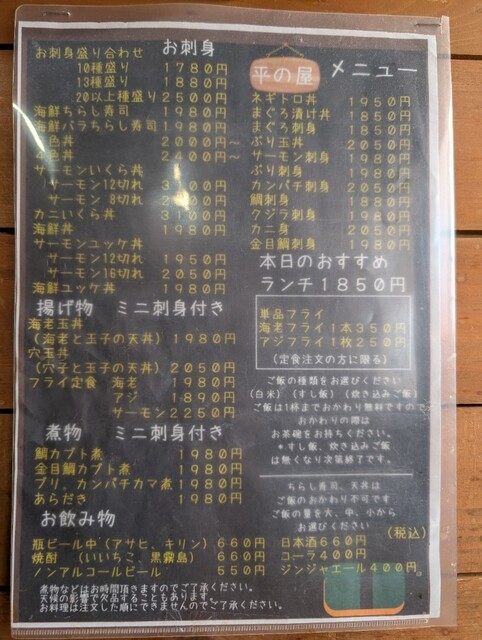 お刺身
お刺身盛り合わせ
10種盛り 1780円
13種盛り 1880円
20以上種盛り 2500円
海鮮ちらし寿司 1980円
海鮮バラちらし寿司 1980円
色丼 2000円～
色丼 2400円～
サーモンいくら丼
サーモン12切れ 3100円
サーモン 8切れ 2
カニいくら丼 3100円
海鮮丼 1980円
サーモンユッケ丼
サーモン12切れ 1950円
サーモン16切れ 2050円
海鮮ユッケ丼 1980円
揚げ物 ミニ刺身付き
海老玉丼
(海老と玉子の天丼) 1980円
穴玉丼
(穴子と玉子の天丼) 2050円
フライ定食 海老 1980円
アジ 1890円
サーモン 2250円
煮物 ミニ刺身付き
鯛カブト煮 1980円
金目鯛カブト煮 1980円
ブリ、カンパチカマ煮 1980円
あらだき 1980円
お飲み物
瓶ビール中(アサヒ、キリン) 660円
焼酎 (いいちこ、黒霧島) 660円
ノンアルコールビール 550円
煮物などはお時間頂きますのでご了承ください。
天候の影響で欠品することもあります。
お料理は注文した順にできませんのでご了承ください。
平の屋 メニュー
ネギトロ丼 1950円
まぐろ漬け丼 1850円
まぐろ刺身 1850円
ぶり玉丼 2050円
サーモン刺身 1980円
ぶり刺身 1980円
カンパチ刺身 2050円
鯛刺身 1880円
クジラ刺身 1980円
カニ身 2050円
金目鯛刺身 1980円
本日のおすすめ
ランチ1850円
単品フライ
海老フライ1本350円
アジフライ1枚250円
(定食注文の方に限る)
ご飯の種類をお選びください
(白米) (すし飯) (炊き込みご飯)
ご飯は1杯までおかわり無料ですので
おかわりの際は
お茶碗をお持ちください。
*すし飯、炊き込みご飯
は無くなり次第終了です。
ちらし寿司、天丼は
ご飯のおかわり不可です
ご飯の量を大、中、小から
お選びください
(税込)
日本酒660円
コーラ400円
ジンジャエール400円。